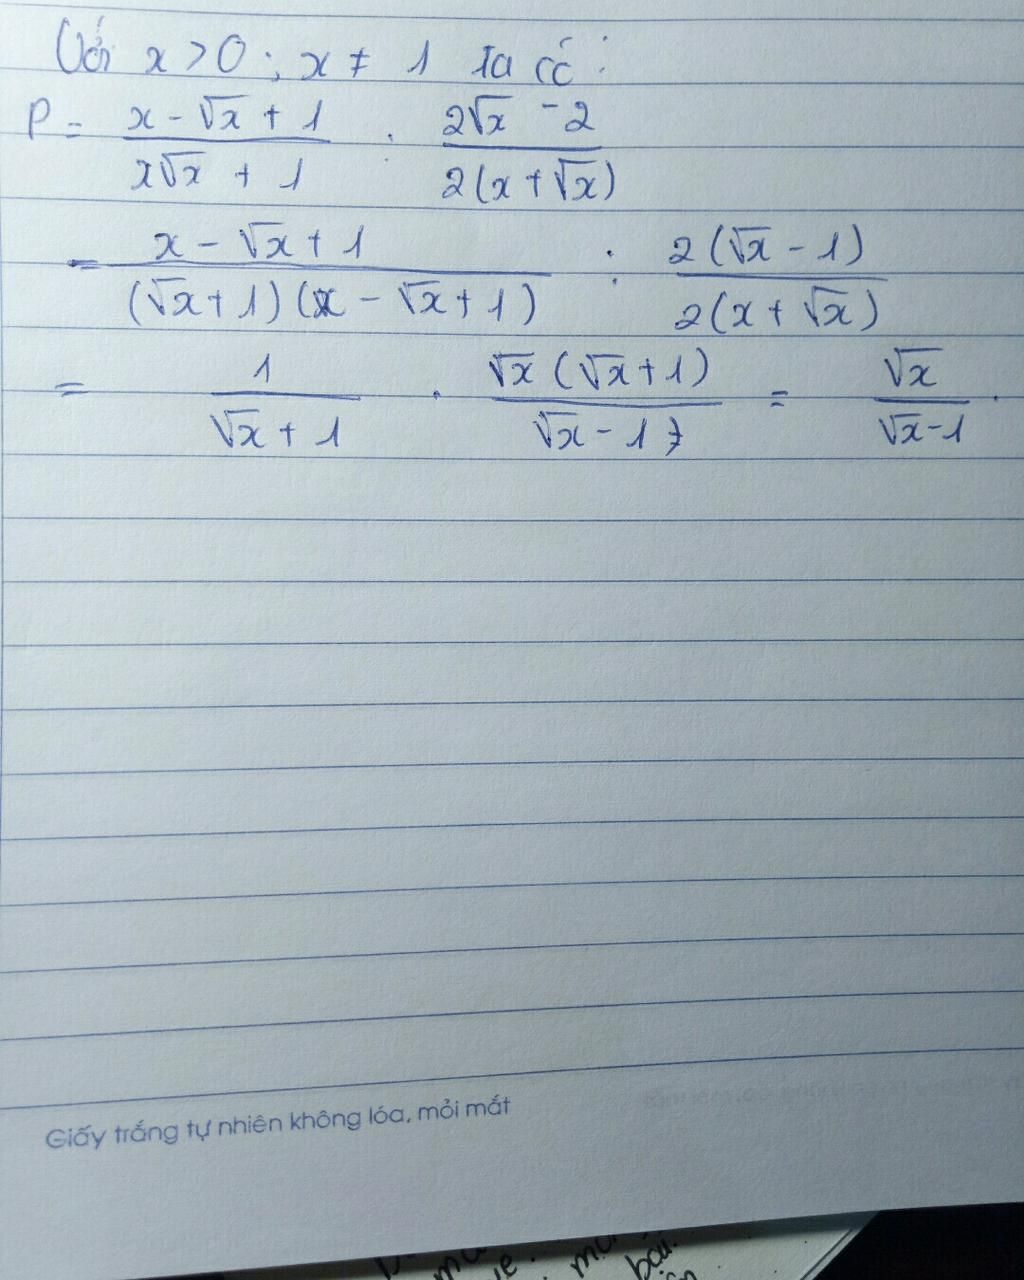 Với x > 0 ; x ≠ 1 ta có :
P = \frac{x - \sqrt{x} + 1}{x\sqrt{x} + 1} : \frac{2\sqrt{x} - 2}{2(x + \sqrt{x})}
= \frac{x - \sqrt{x} + 1}{(\sqrt{x} + 1)(x - \sqrt{x} + 1)} : \frac{2(\sqrt{x} - 1)}{2(x + \sqrt{x})}
= \frac{1}{\sqrt{x} + 1} . \frac{\sqrt{x}(\sqrt{x} + 1)}{\sqrt{x} - 1} = \frac{\sqrt{x}}{\sqrt{x} - 1} .
Giấy trắng tự nhiên không lóa, mỏi mắt